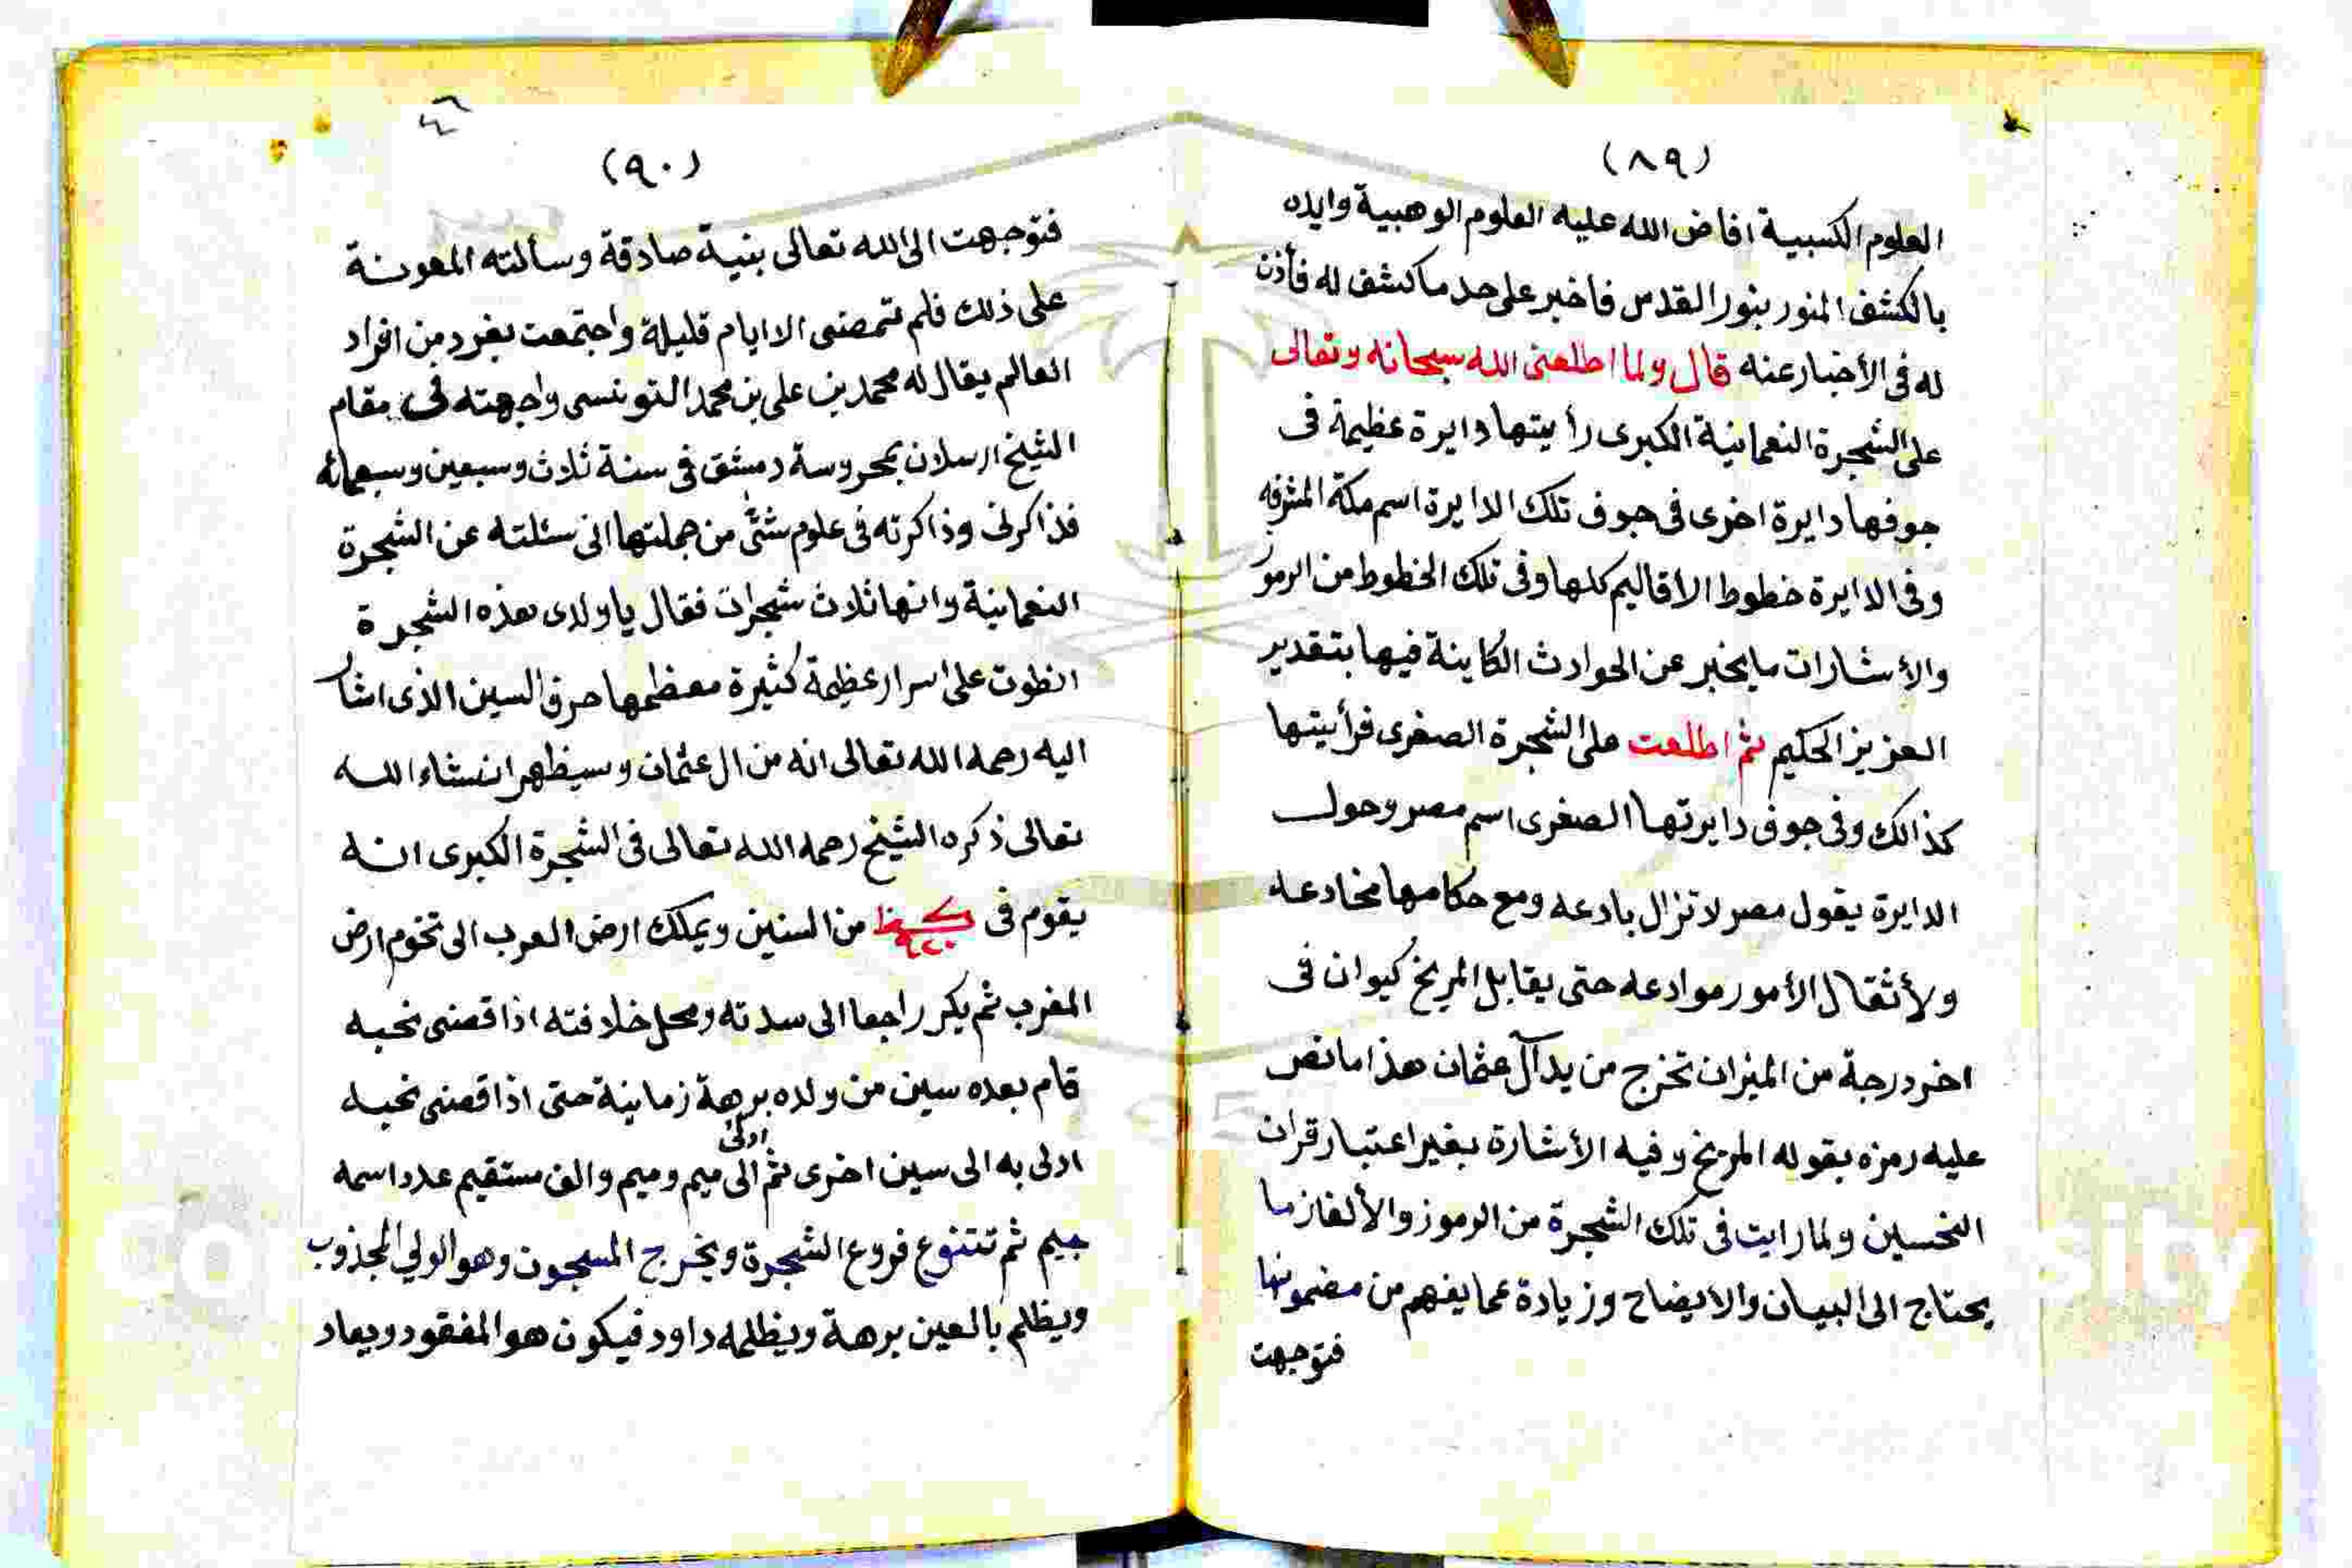 (٨٩)
العلوم الكسبية افاض الله عليه العلوم الوهبية وايده
بالكشف المنور بنور القدس فاخبر على حد ما كشف له فأذن
له فى الأخبار عنه قال ولما اطلعنى الله سبحانه وتعالى
على الشجرة النعمانية الكبرى رأيتها دايرة عظيمة فى
جوفها دايرة اخرى فى جوف تلك الدايرة اسم مكة المشرفه
وفى الدايرة خطوط الأقاليم كلها وفى تلك الخطوط من الرموز
والأشارات ما يخبر عن الحوادث الكاينة فيها بتقدير
العزيز الحكيم ثم اطلعت على الشجرة الصغرى فرأيتها
كذالك وفى جوف دايرتها الصغرى اسم مصر وحول
الدايرة يقول مصر لا تزال بادعه ومع حكامها مخادعه
ولأثقال الأمور موادعه حتى يقابل المريخ كيوان فى
اخر درجة من الميزان تخرج من يد آل عثمان هذا ما نص
عليه رمزه بقوله المريخ وفيه الأشارة بغير اعتبار قران
النحسين ولما رايت فى تلك الشجرة من الرموز والألغاز ما
يحتاج الى البيان والايضاح وزيادة عما يفهم من مضمونها
فتوجهت
٤٦
(٩٠)
فتوجهت الى الله تعالى بنية صادقة وسألته المعونة
على ذلك فلم تمضى الا ايام قليلة واجتمعت بفرد من افراد
العالم يقال له محمد بن على بن محمد التونسى واجهته فى مقام
الشيخ ارسلان بمحروسة دمشق فى سنة ثلاث وسبعين وسبعمائه
فذاكرنى وذاكرته فى علوم شتى من جملتها انى سئلته عن الشجرة
النعمانية وانها ثلاث شجرات فقال يا ولدى هذه الشجرة
انطوت على اسرار عظيمة كثيرة معظمها حرف السين الذى اشار
اليه رحمه الله تعالى انه من ال عثمان وسيظهر انشاء الله
تعالى ذكره الشيخ رحمه الله تعالى فى الشجرة الكبرى انه
يقوم فى ٩٢٠ من السنين ويملك ارض العرب الى تخوم ارض
المغرب ثم يكر راجعا الى سدته ومحل خلافته اذا قضى نحبه
قام بعده سين من ولده برهة زمانية حتى اذا قضى نحبه
ادلى به الى سين اخرى ثم ادلى الى ميم وميم والف مستقيم عدد اسمه
جيم ثم تتنوع فروع الشجرة ويخرج المسجون وهو الولي المجذوب
ويظلم بالعين برهة ويظلمه داود فيكون هو المفقود ويعاد